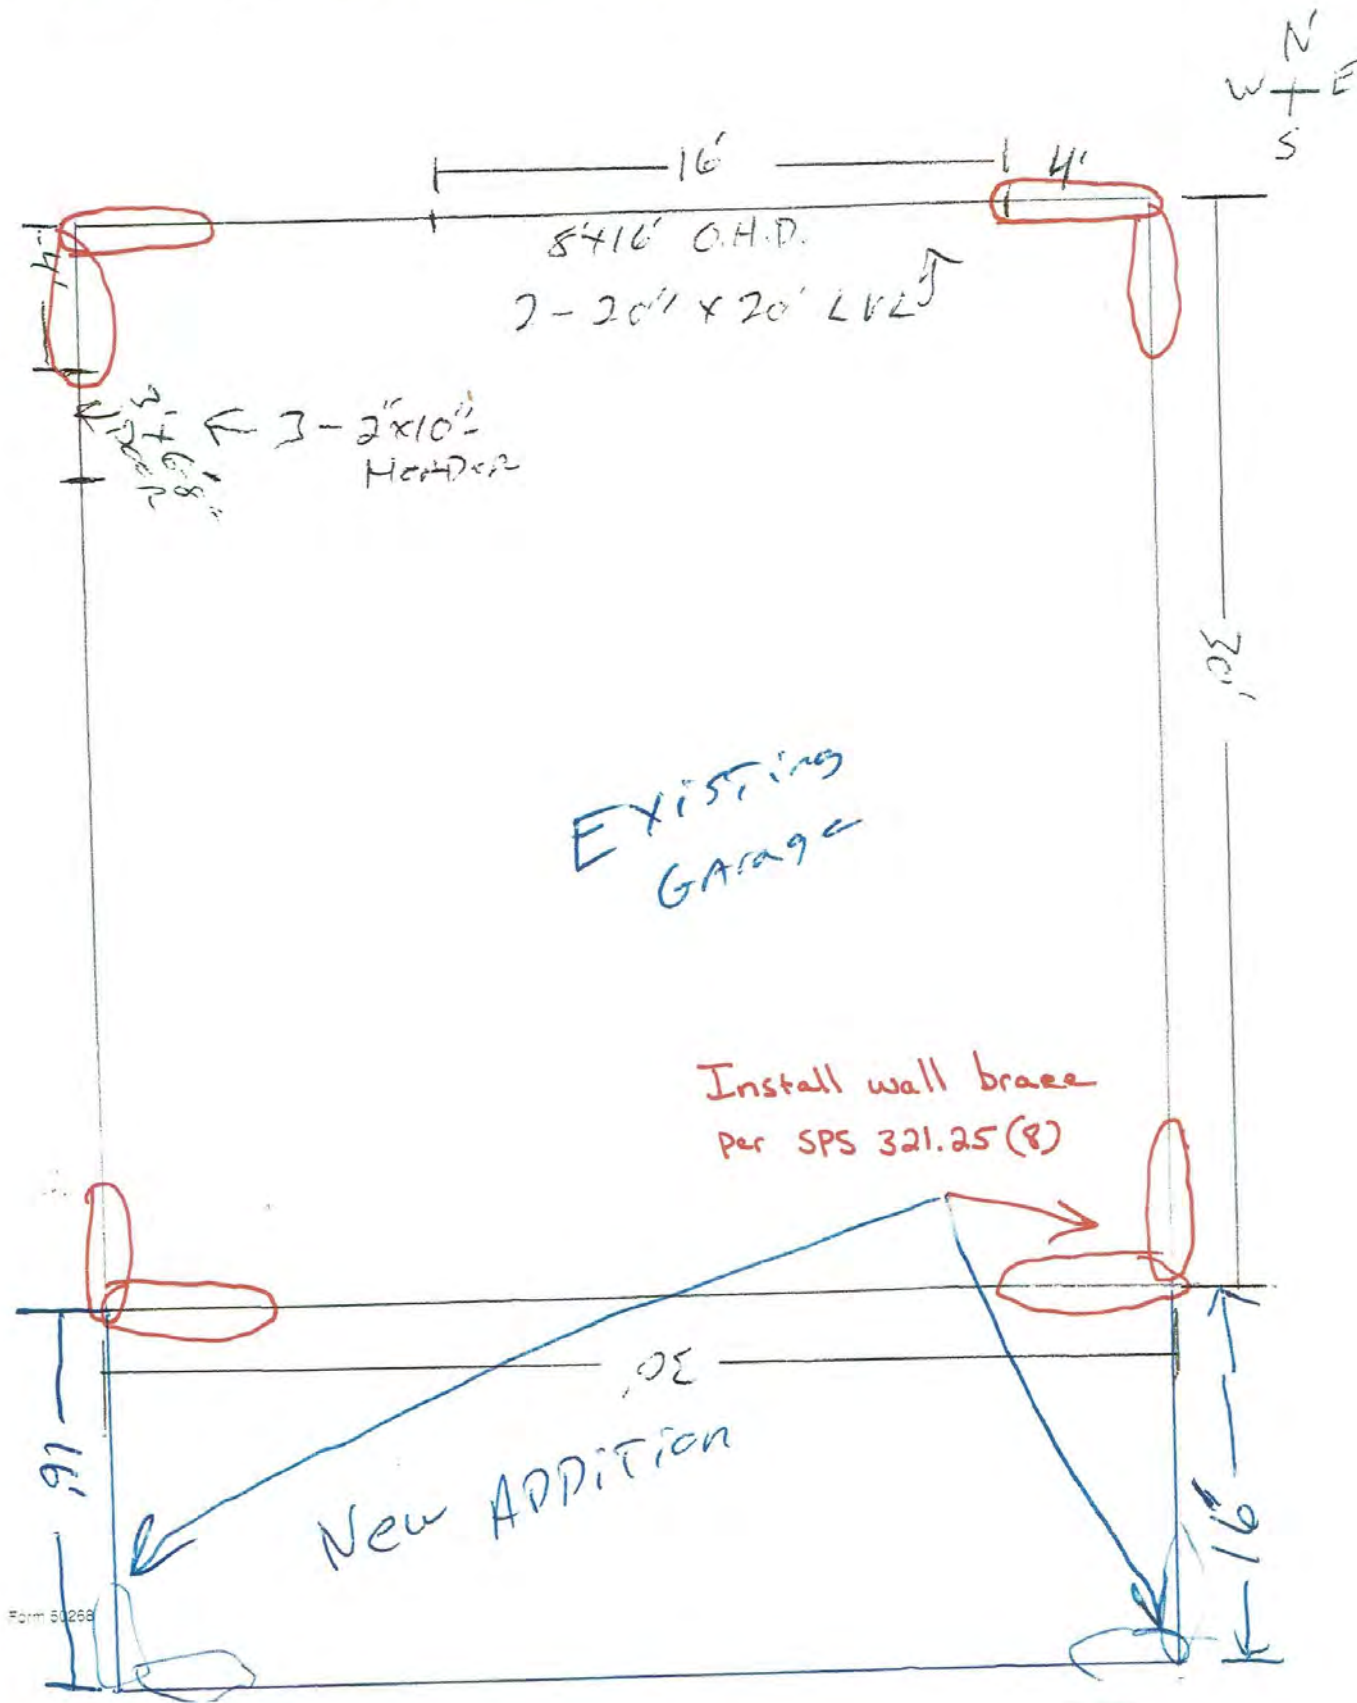 N
W E
S
16'
4'
8'x16' O.H.D.
2-20" x 20' LVL
4'
3-2"x10"
HeaDer
30'
Existing
GArage
Install wall brace
per SPS 321.25(8)
30'
16'
New ADDiTion
16'
Form 50268